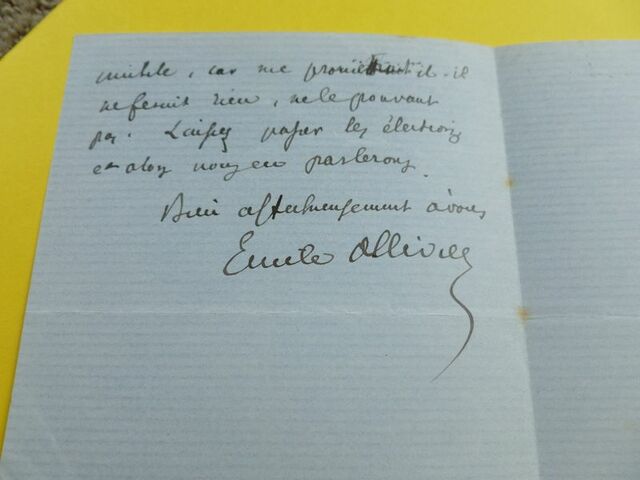 inutile, car me promettrait-il il
ne ferait rien, ne le pouvant
pas. Laissez passer les élections
et alors nous en parlerons.
Bien affectueusement à vous
Emile Ollivier